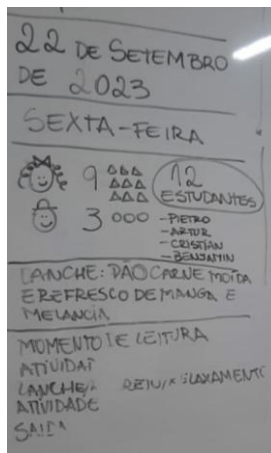 22 DE SETEMBRO
DE 2023
SEXTA-FEIRA
9
12
ESTUDANTES
3
-PIETRO
-ARTUR
-CRISTIAN
-BENJAMIN
LANCHE: PÃO CARNE MOÍDA
E REFRESCO DE MANGA E
MELANCIA
MOMENTO DE LEITURA
LANCHE
ATIVIDADE